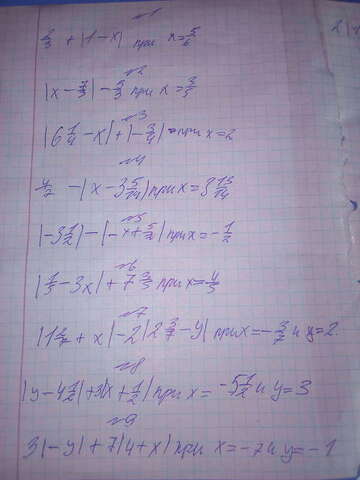 №1
2/3 + |1-x| при x=5/6
№2
|x - 7/3| - 5/3 при x = 3/5
№3
|6 1/4 - x| + |-3/4| при x = 2
№4
4/7 - |x - 3 5/14| при x = 3 13/14
№5
|-3 1/2| - |-x + 5/8| при x = -1/2
№6
|1/5 - 3x| + 7 3/5 при x = 4/5
№7
|1 2/7 + x| - 2|2 3/7 - y| при x = -3/7 и y = 2
№8
|y - 4 1/2| + 3|x + 1/2| при x = -5 1/2 и y = 3
№9
3|-y| + 7|4 + x| при x = -7 и y = -1